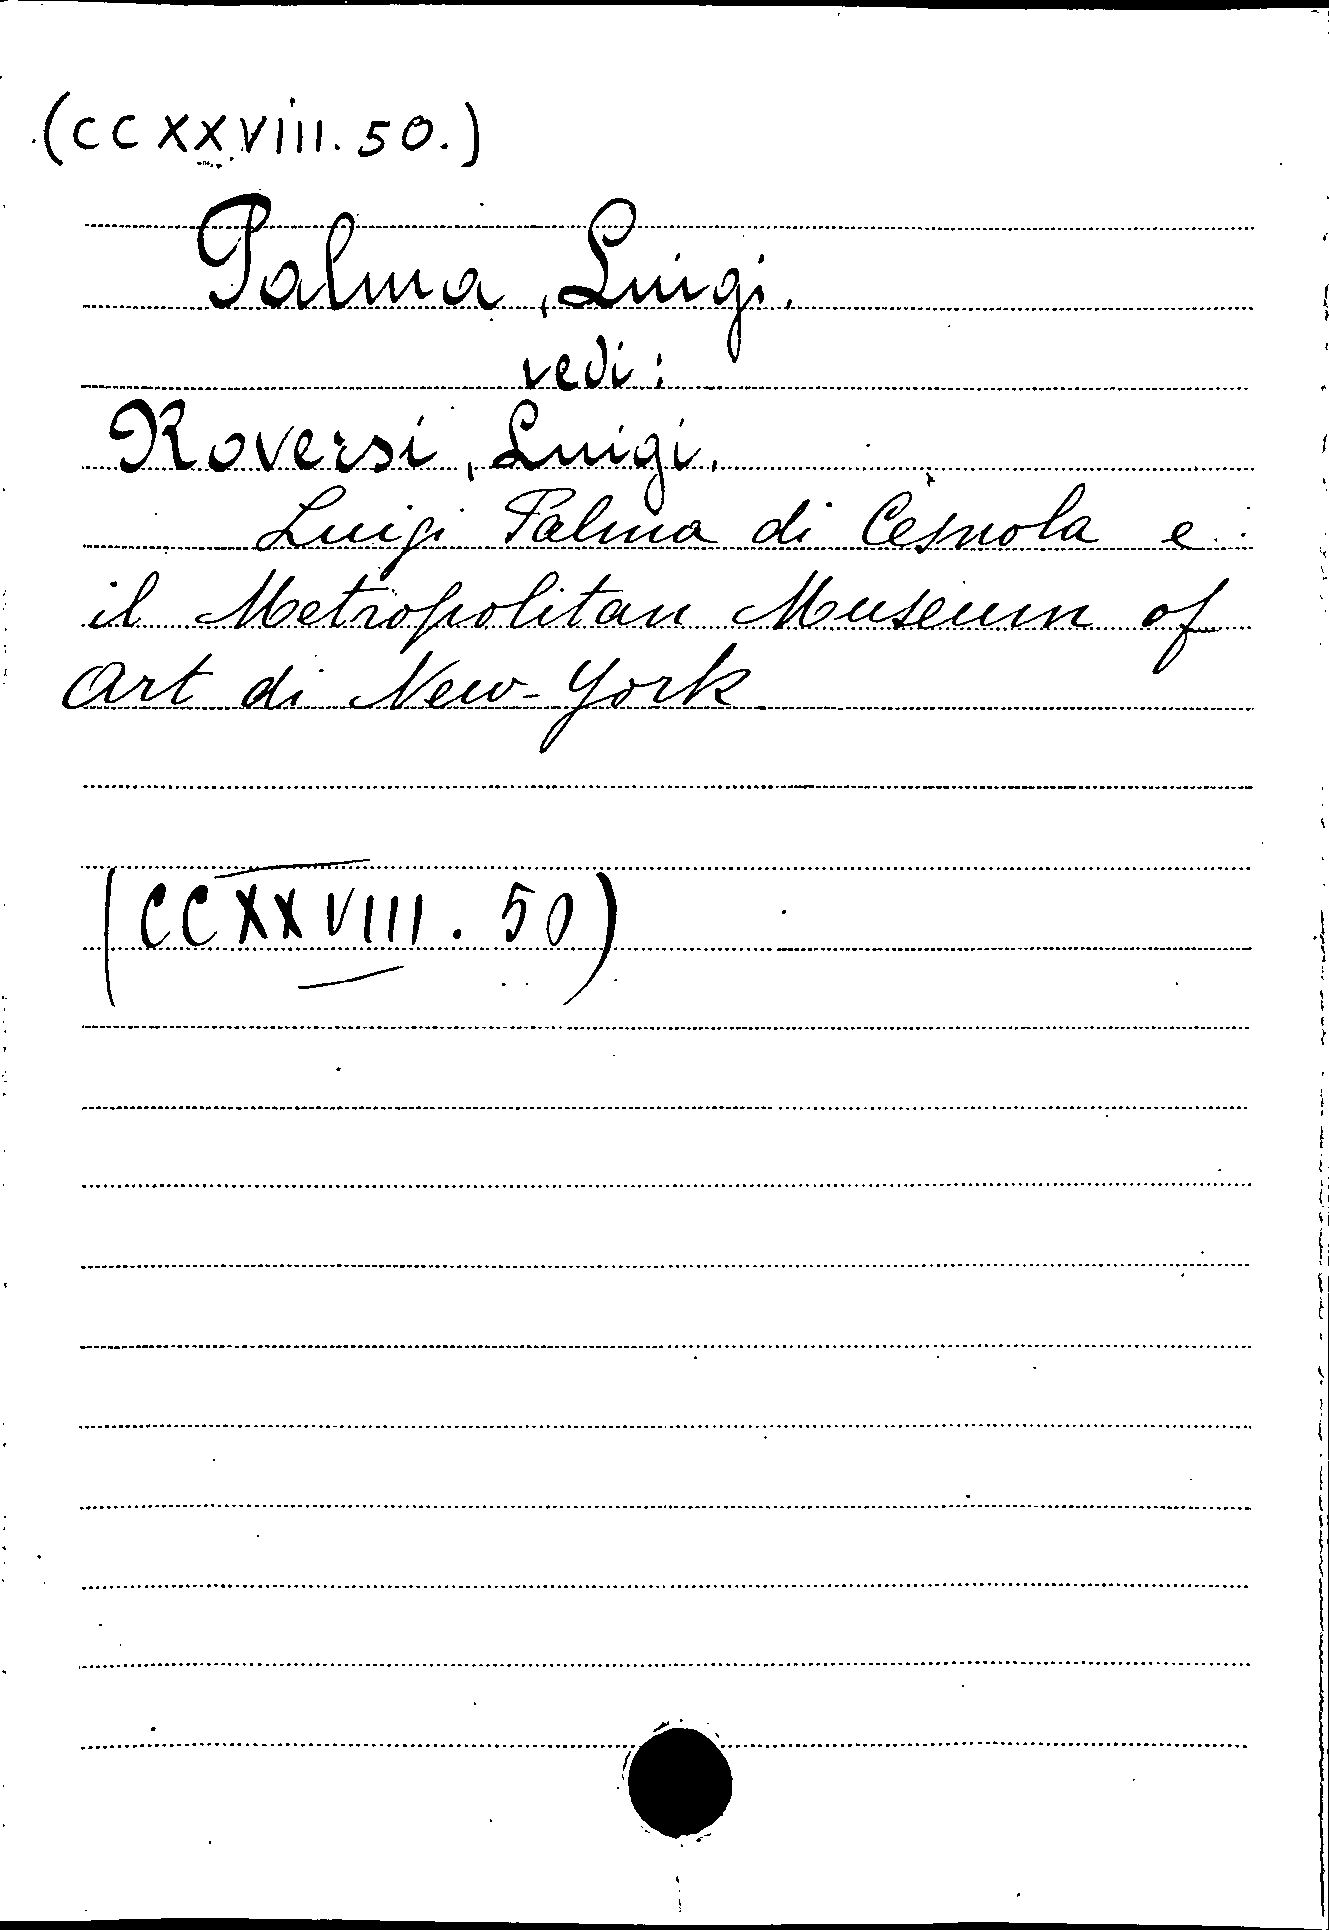 (CCXXVIII. 50.)
Palma, Luigi.
vedi:
Roversi, Luigi.
Luigi Palma di Cesnola e
il Metropolitan Museum of
Art di New-York
(CCXXVIII. 50)